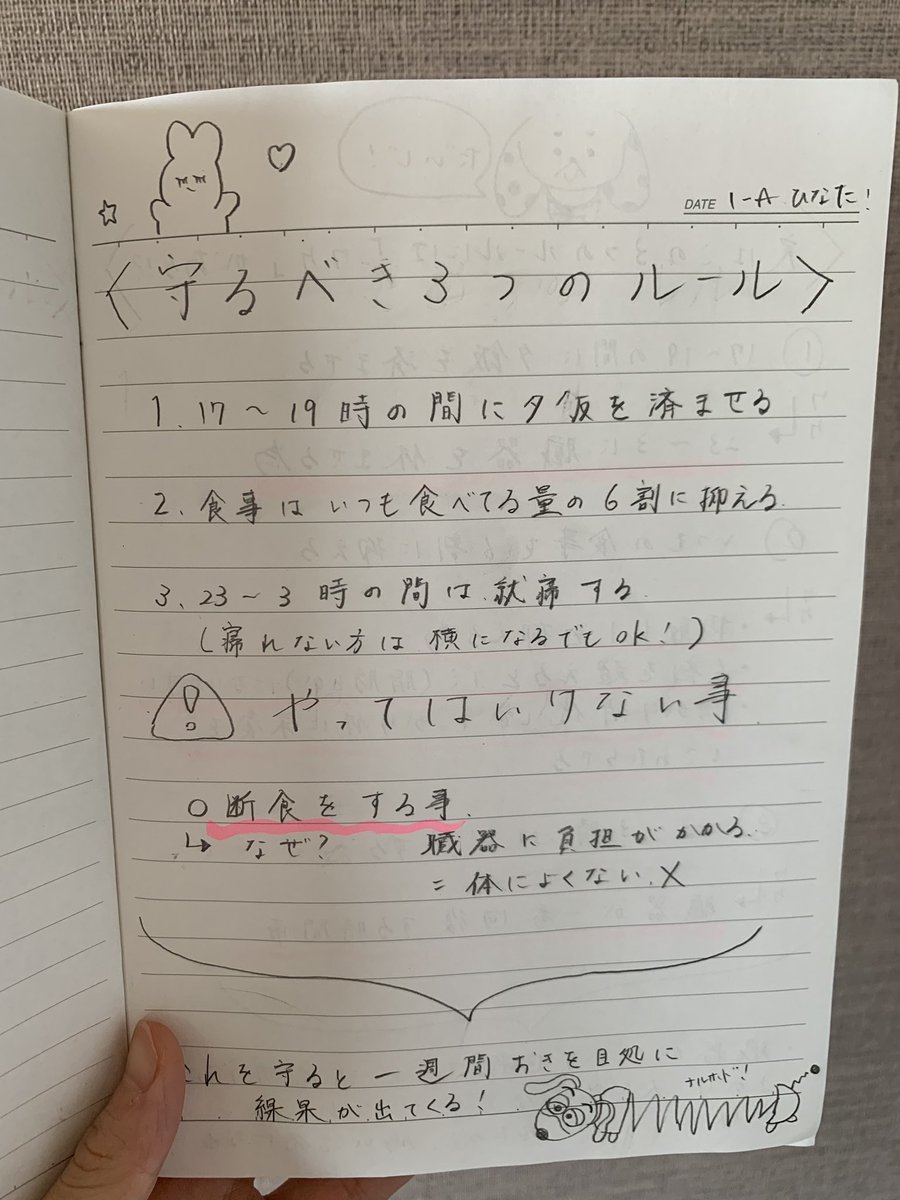 DATE 1-A ひなた!
〈守るべき3つのルール〉
1. 17〜19時の間に夕飯を済ませる
2. 食事はいつも食べてる量の6割に抑える.
3. 23〜3時の間は就寝する.
(寝れない方は横になるでもOK!)
! やってはいけない事
○断食をする事.
↳なぜ? 臓器に負担がかかる.
=体によくない.X
これを守ると一週間おきを目処に
線果が出てくる!
ナルホド!
だいじ!